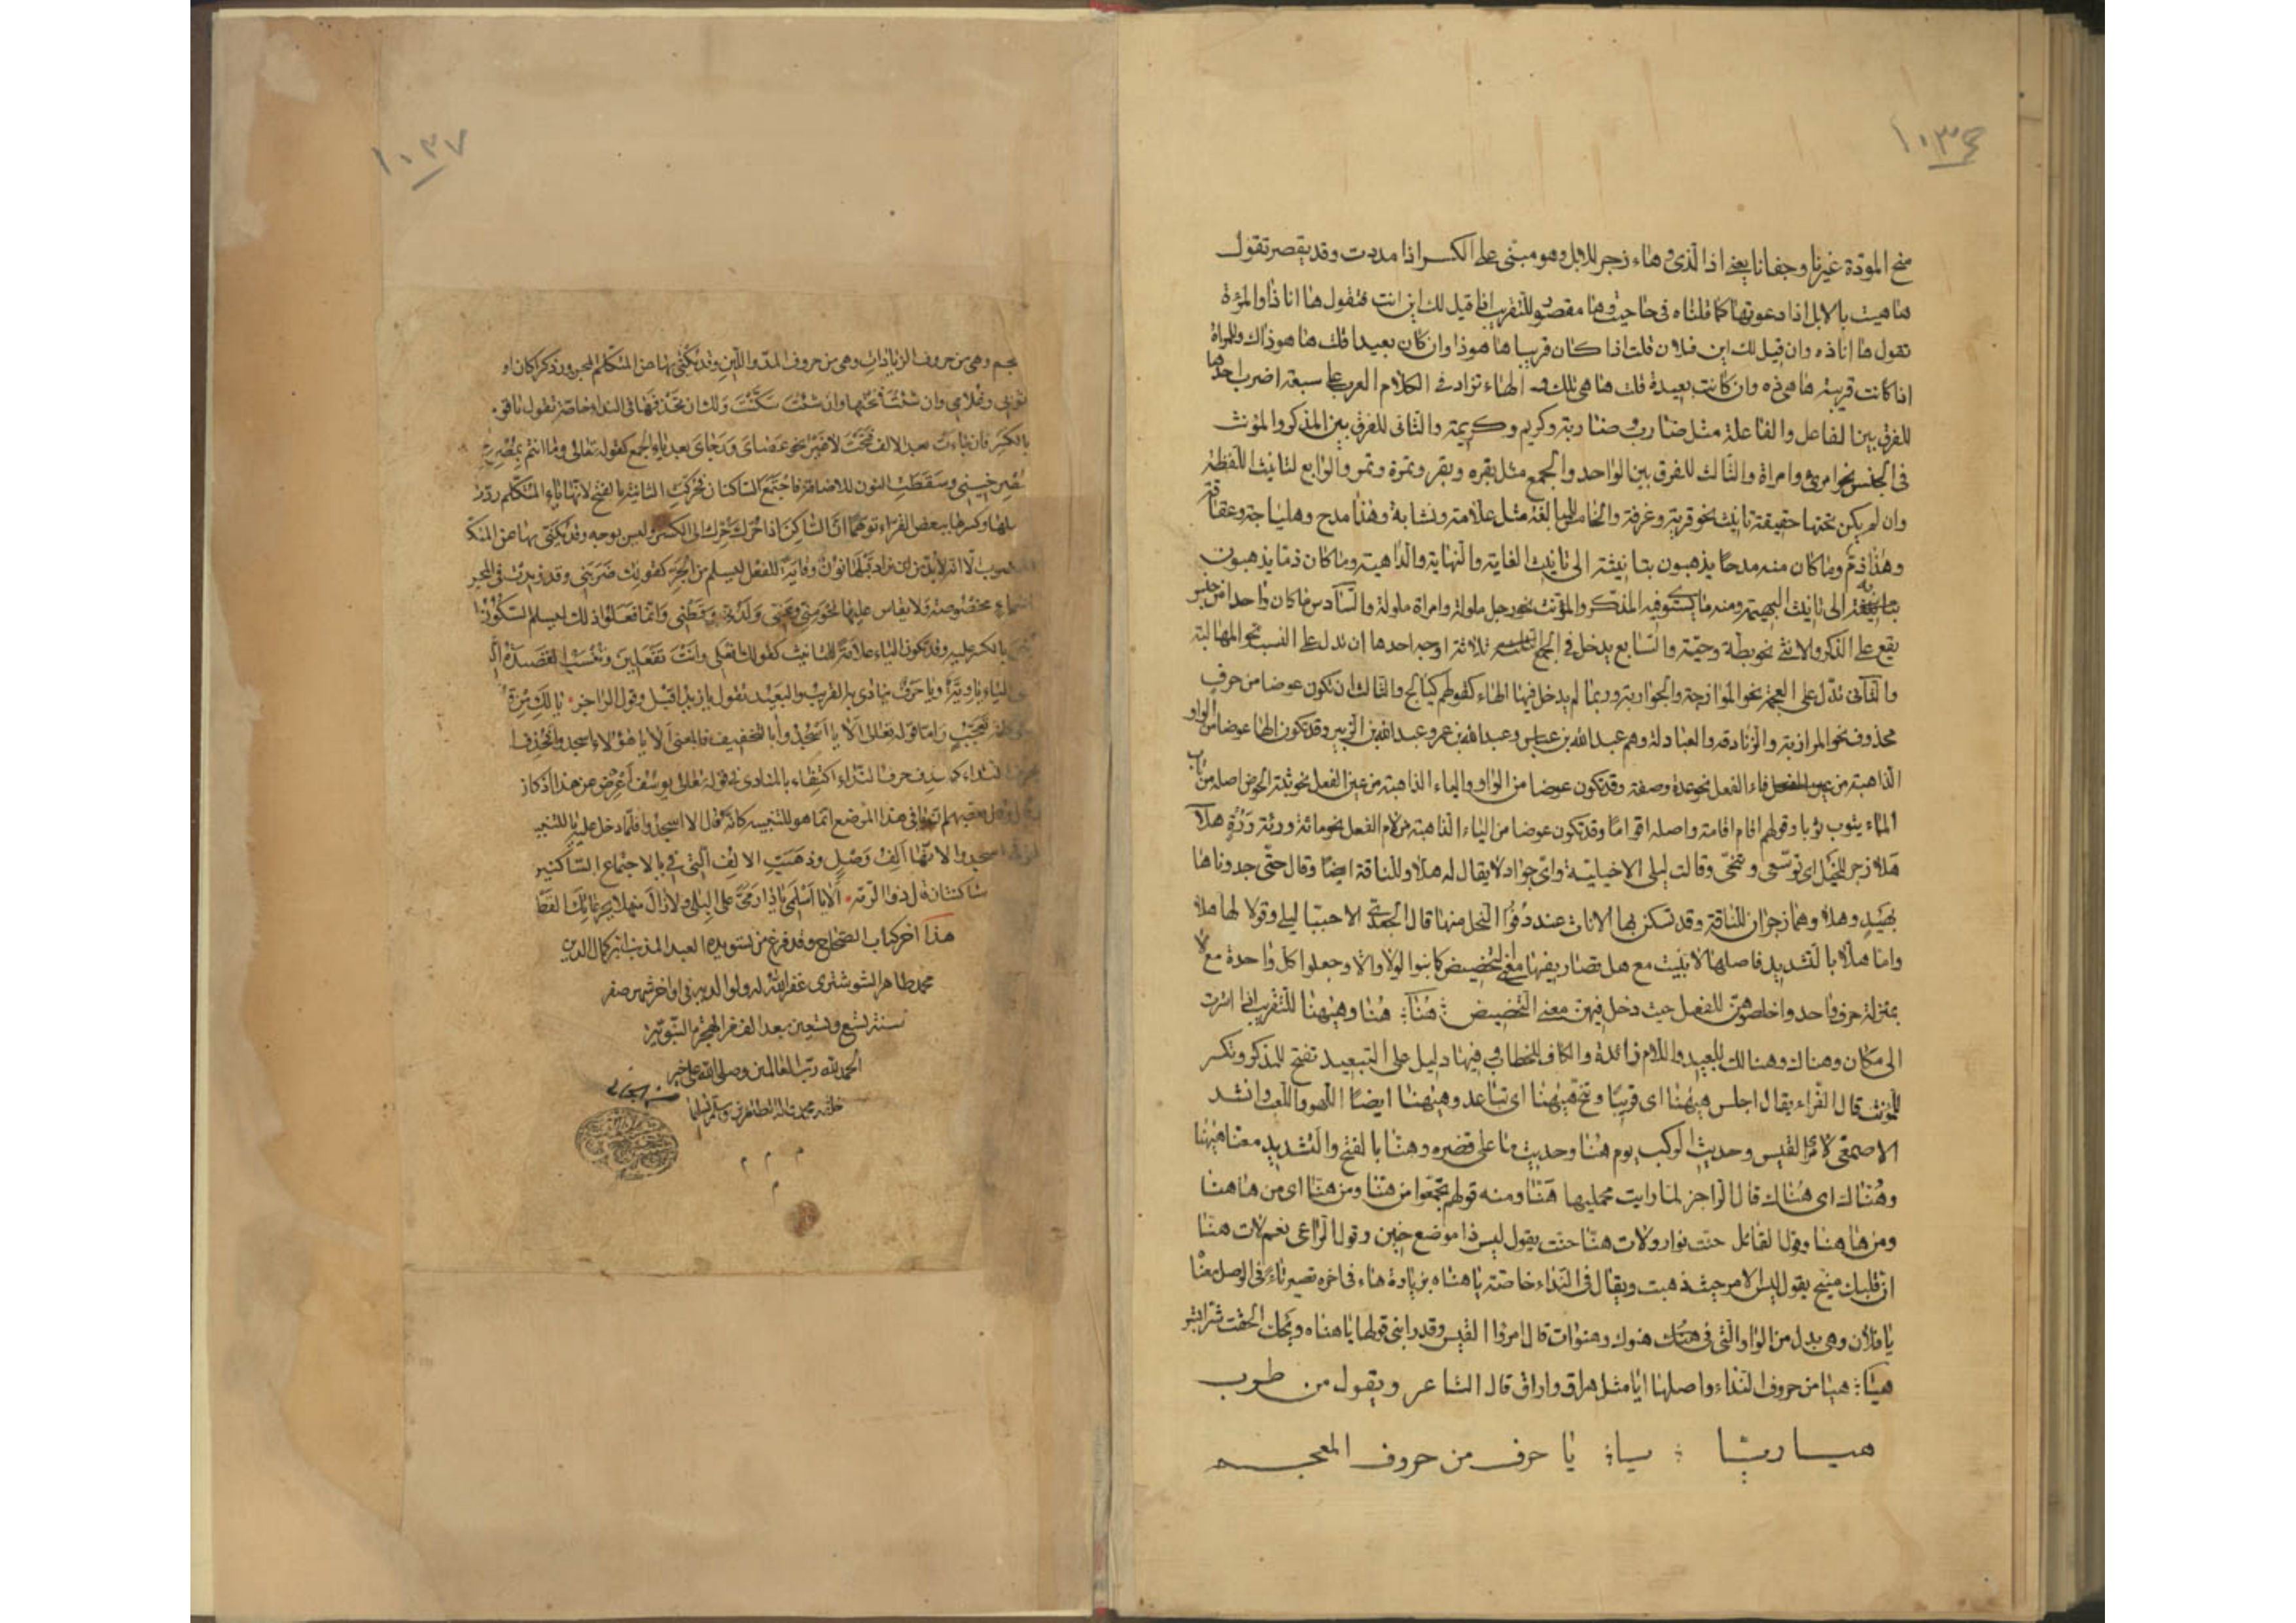 ١٠٣٦
منح المودة غيرنا وجفانا يعنى اذا الذى وهاء زجر للابل وهو مبنى على الكسر اذا مددت وقد يقصر تقول
هاهيت بالابل اذا دعوتها كما قلناه فى حاحيت وها مقصور للتقريب اذا قيل لك اين انت فتقول ها انا ذا والمرءة
تقول ها انا ذه وان قيل لك اين فلان قلت اذا كان قريبا ها هوذا وان كان بعيدا قلت ها هو ذاك وللمراة
اذا كانت قريبة ها هى ذه وان كانت بعيدة قلت ها هى تلك والهاء تزاد فى الكلام العرب على سبعة اضرب احدها
للفرق بين الفاعل والفاعلة مثل ضارب وضاربة وكريم وكريمة والثانى للفرق بين المذكر والمؤنث
فى الجنس نحو امرئ وامراة والثالث للفرق بين الواحد والجمع مثل بقره وبقر وتمرة وتمر والرابع لتانيث اللفظة
وان لم يكن تحتها حقيقة تانيث نحو قربة وغرفة والخامس للمبالغة مثل علامة ونسابة وهذا مدح وهلباجة وعقاقة
وهذا ذم وما كان منه مدحا يذهبون بتانيثه الى تانيث الغاية والنهاية والداهية وما كان ذما يذهبون
به الى تانيث البهيمة ومنه ما يستوى فيه المذكر والمؤنث نحو رجل ملولة وامراة ملولة والسادس ما كان واحدا من جنس
يقع على الذكر والانثى نحو بطة وحية والسابع يدخل فى الجمع ثلاثة اوجه احدها ان تدل على النسب نحو المهالبة
والثانى تدل على العجمة نحو الموازجة والجواربة وربما لم يدخل فيها الهاء كقولهم كيالج والثالث ان تكون عوضا من حرف
محذوف نحو المرازبة والزنادقة والعبادلة وهم عبد الله بن عباس وعبد الله بن عمرو عبد الله بن الزبير وقد تكون الها عوضا من الواو
الذاهبة من فاء الفعل نحو عدة وصفة وقد تكون عوضا من الواو والياء الذاهبة من عين الفعل نحو ثبة الحوض اصله من ثاب
الماء يثوب ثوبا وقولهم اقام اقامة واصله اقواما وقد تكون عوضا من الياء الذاهبة من لام الفعل نحو مائة ورئة وبرة هلا
هلا زجر للخيل اى توسعى وتنحى وقالت ليلى الاخيلية واى جواد لا يقال له هلا وللناقة ايضا وقال حتى حدوناها
بهيد وهلا وهما زجران للناقة وقد تسكن بها الاناث عند دنو الفحل منها قال الجعدى الا حييا ليلى وقولا لها هلا
واما هلا بالتشديد فاصلها لا بنيت مع هل فصار فيها معنى التحضيض كما بنوا لولا والا وجعلوا كل واحدة مع لا
بمنزلة حرف واحد واخلصوهن للفعل حيث دخل فيهن معنى التحضيض هنا هنا وههنا للتقريب اذا اشرت
الى مكان وهناك وهنالك للبعيد واللام زائدة والكاف للخطاب وفيها دليل على التبعيد تفتح للمذكر وتكسر
للمؤنث قال الفراء يقال اجلس ههنا اى قريبا وتنح ههنا اى تباعد وههنا ايضا اللهو واللعب وانشد
الاصمعى لامرئ القيس وحديث الركب يوم هنا وحديث ما على قصره وهنا بالفتح والتشديد معناه ههنا
وهناك اى هناك قال الراجز لما رايت محمليها هنا ومنه قولهم تجمعوا من هنا ومن هنا اى من هاهنا
ومن هاهنا وقول القائل حنت نوار ولات هنا حنت يقول ليس ذا موضع حنين وقول الراعى نعم لات هنا
ان قلبك متيح يقول ليس الامر حيث ذهبت ويقال فى النداء خاصة يا هناه بزيادة هاء فى اخره تصير تاء فى الوصل معناه
يا فلان وهى بدل من الواو التى فى هنوك وهنوات قال امرؤ القيس وقد رابنى قولها يا هناه ويحك الحقت شرا بشر
هيا هيا من حروف النداء واصلها ايا مثل هراق واراق قال الشاعر ويقول من طرب
هيا ربا يا يا حرف من حروف المعجم
١٠٣٧
وهى من حروف الزيادات وهى من حروف المد واللين وقد يكنى بها عن المتكلم المجرور ذكرا كان او
ثوبى وغلامى وان شئت فتحتها وان شئت سكنت ولك ان تحذفها فى النداء خاصة تقول يا قوم
بالكسر فان جاءت بعد الالف فتحت لا غير نحو عصاى ورحاى بعد ياء الجمع كقوله تعالى وما انتم بمصرخى
وسقطت النون للاضافة فاجتمع الساكنان فحركت الثانية بالفتح لانها ياء المتكلم ردت
وكسرها بعض القراء توهما ان الساكن اذا حرك حرك الى الكسر وليس بوجه وقد يكنى بها عن المتكلم
الا انه لا بد من ان تزاد قبلها نون وقاية للفعل ليسلم من الجر كقولك ضربنى وقد زيدت فى المجرور
مخصوصة ولا يقاس عليها نحو منى وعنى ولدنى وقطنى وانما فعلوا ذلك ليسلم السكون
وقد تكون الياء علامة للتانيث كقولك افعلى وانت تفعلين وتنسب القصيدة
الياء ياوية ويا حرف ينادى به القريب والبعيد تقول يا زيد اقبل وقول الراجز يا لك من
واما قوله تعالى الا يا اسجدوا بالتخفيف فالمعنى الا يا هؤلاء اسجدوا فحذف
حرف النداء اكتفاء بالمنادى فى قوله تعالى يوسف اعرض عن هذا اذ كان
بعضهم ان يا فى هذا الموضع انما هو للتنبيه كانه قال الا اسجدوا فلما دخل عليه يا للتنبيه
اسجدوا لانها الف وصل وذهبت الالف التى فى يا لاجتماع الساكنين
ساكنتان قال ذو الرمة الا يا اسلمى يا دارمى على البلى ولا زال منهلا بجرعائك القطر
هذا آخر كتاب الصحاح وقد فرغ من تسويده العبد المذنب ابن كمال الدين
محمد طاهر الشوشترى غفر الله له ولوالديه فى اواخر شهر صفر
سنة تسع وتسعين بعد الف من الهجرة النبوية
الحمد لله رب العالمين وصلى الله على خير
خلقه محمد واله الطاهرين وسلم تسليما
م م م
م